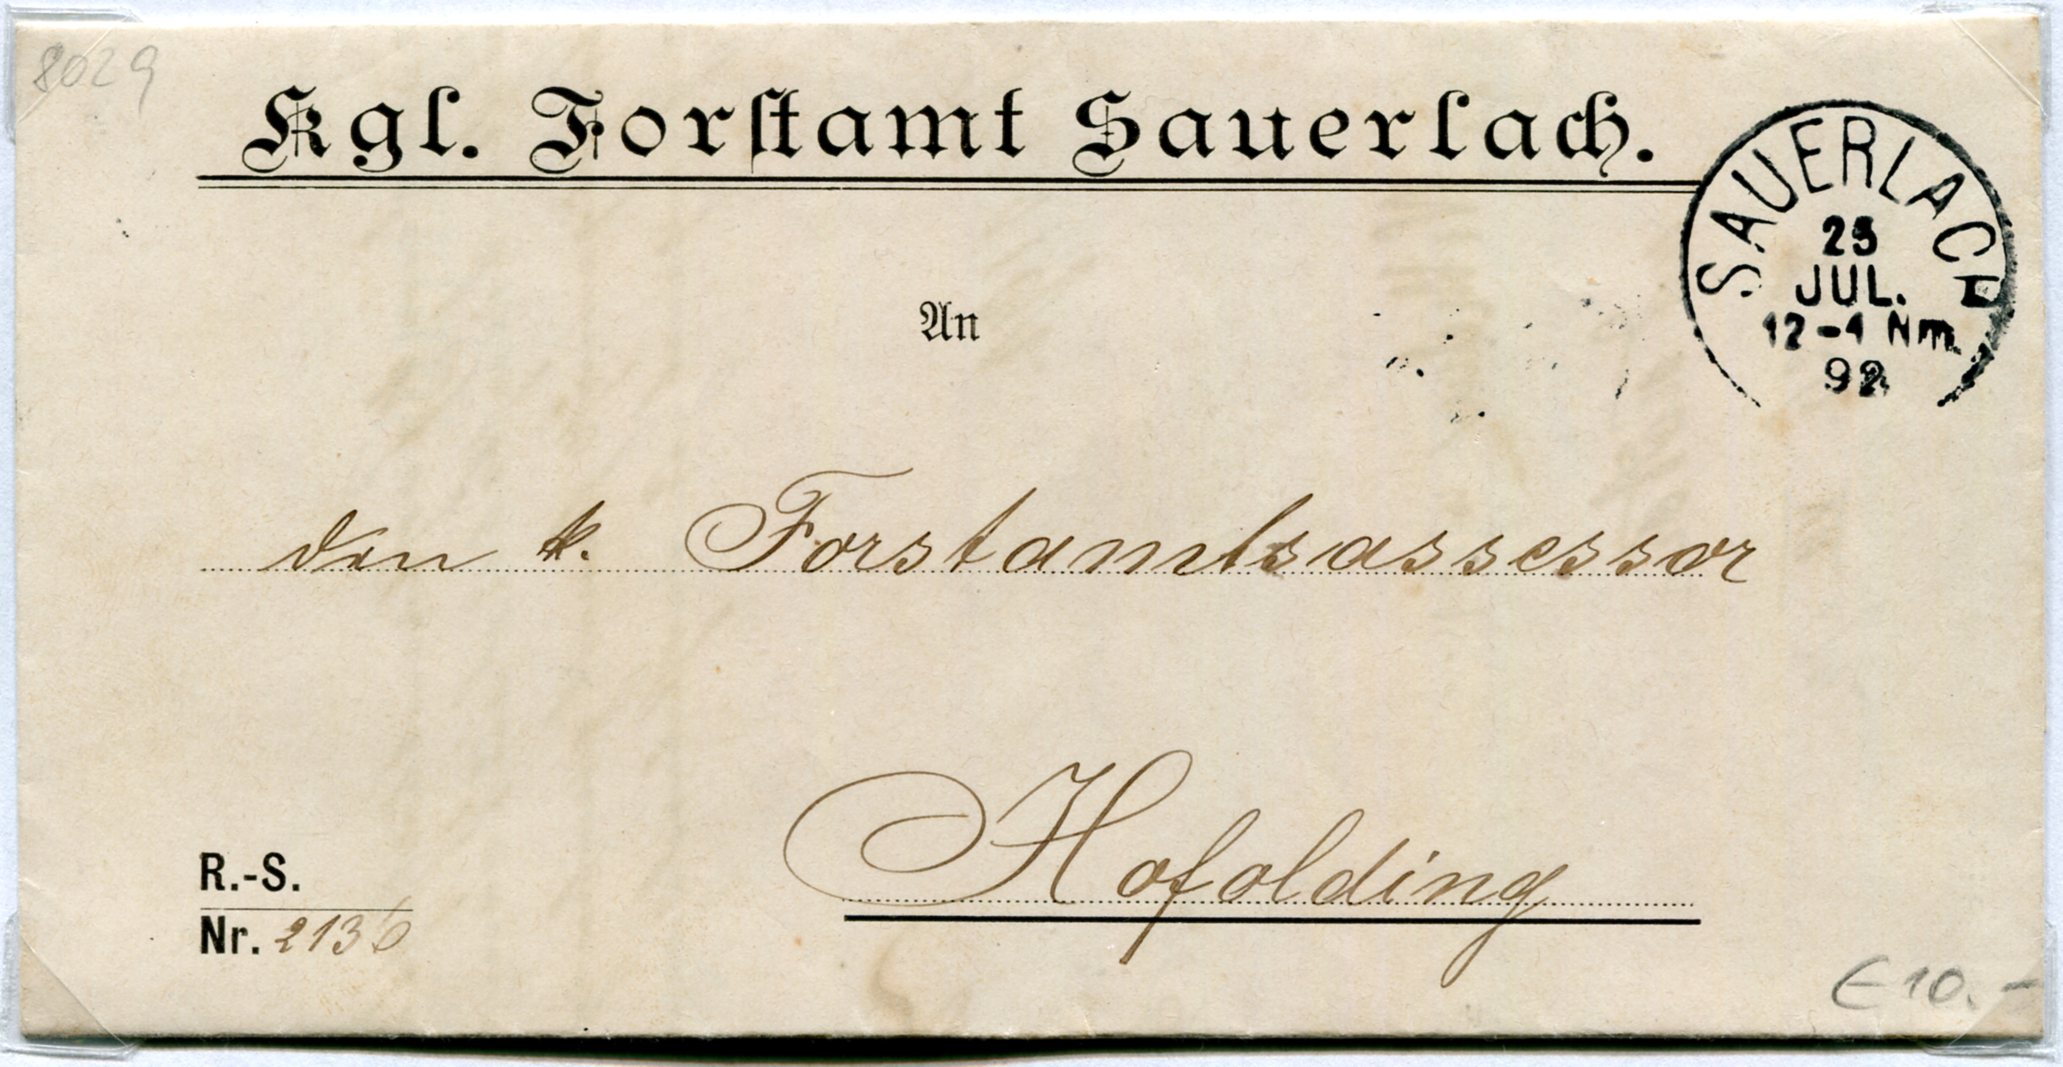 8029
Kgl. Forstamt Sauerlach.
SAUERLACH
25
JUL.
12-1 Nm.
92
An
den k. Forstamtsassessor
Hofolding
R.-S.
Nr. 2136
€ 10.-